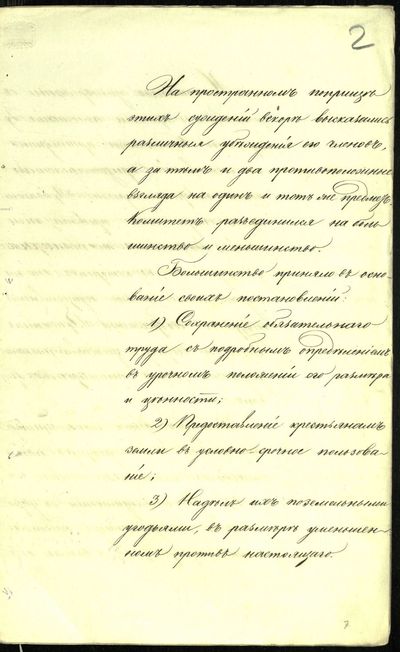 2
На пространномъ поприщѣ
этихъ сужденій вскорѣ высказались
различныя убѣжденія его членовъ,
а за тѣмъ и два противоположные
взгляда на одинъ и тотъ же предметъ.
Комитетъ разъединился на боль-
шинство и меньшинство.
Большинство приняло въ осно-
ваніе своихъ постановленій:
1) Сохраненіе обязательнаго
труда съ подробнымъ опредѣленіемъ
въ урочномъ положеніи его размѣра
и цѣнности;
2) Предоставленіе крестьянамъ
земли въ условно-срочное пользова-
ніе;
3) Надѣлъ ихъ поземельными
угодьями, въ размѣрѣ уменьшен-
номъ противъ настоящаго.